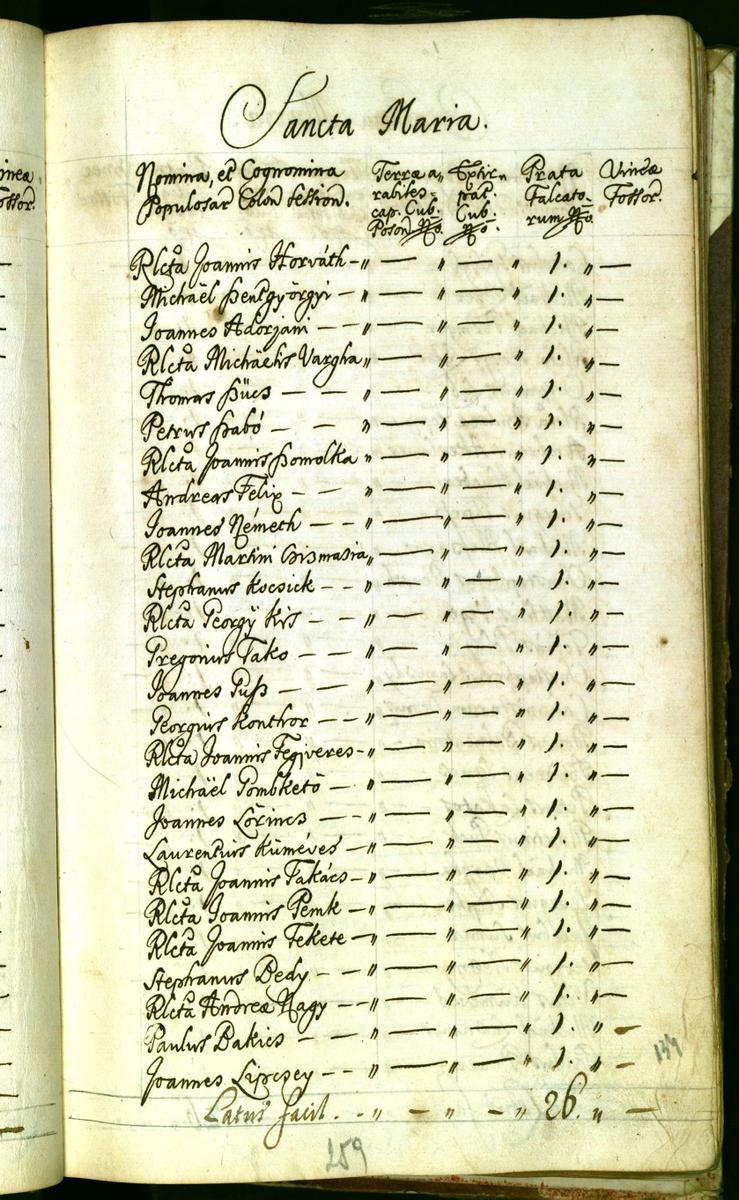 ineæ
ossor.
Sancta Maria.
Nomina, et Cognomina Terræ a„ Extir„ Prata Vineæ
Populosar Colon Session. rabiles. pat. Falcato„ Fossor.
cap. Cub. Cub. rum No
Poson No. No.
Rlcta Joannis Horváth – „ — „ — „ 1. „ —
Michaël Szentgyörgyi – „ — „ — „ 1. „ —
Joannes Adorjáni – – „ — „ — „ 1. „ —
Rlcta Michäelis Vargha „ — „ — „ 1. „ —
Thomas Szücs – – „ — „ — „ 1. „ —
Petrus Szabó – – „ — „ — „ 1. „ —
Rlcta Joannis Szomolka „ — „ — „ 1. „ —
Andreas Felix – – „ — „ — „ 1. „ —
Joannes Németh – – „ — „ — „ 1. „ —
Rlcta Martini Csizmasia „ — „ — „ 1. „ —
Stephanus Kocsick – – „ — „ — „ 1. „ —
Rlcta Georgÿ Kis – – „ — „ — „ 1. „ —
Gregorius Tako – – „ — „ — „ 1. „ —
Joannes Gusz – – „ — „ — „ 1. „ —
Georgius Konthor – – „ — „ — „ 1. „ —
Rlcta Joannis Fegÿveres – „ — „ — „ 1. „ —
Michaël Gombkető – „ — „ — „ 1. „ —
Joannes Lőrincs – – „ — „ — „ 1. „ —
Laurentius Kűméves – „ — „ — „ 1. „ —
Rlcta Joannis Takács – „ — „ — „ 1. „ —
Rlcta Joannis Pemk – „ — „ — „ 1. „ —
Rlcta Joannis Fekete – „ — „ — „ 1. „ —
Stephanus Dedy – – „ — „ — „ 1. „ —
Rlcta Andreæ Nagy – – „ — „ — „ 1. „ —
Paulus Bakics – – „ — „ — „ 1. „ —
Joannes Lipcsey – – „ — „ — „ 1. „ —
Latus facit. – „ – „ – „ 26. „ —
134
259